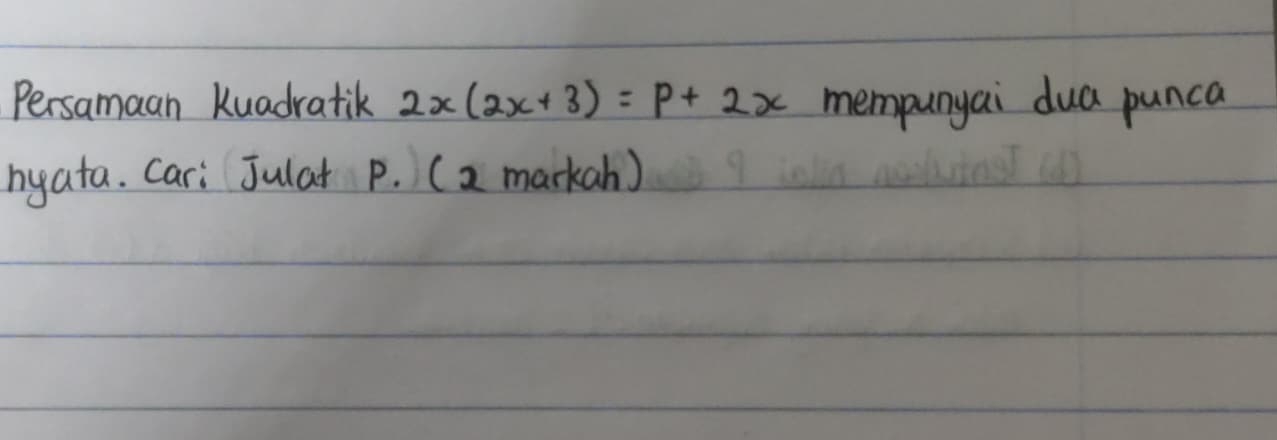 Persamaan Kuadratik 2x(2x+3) = P + 2x mempunyai dua punca
nyata. Cari Julat P. (2 markah)